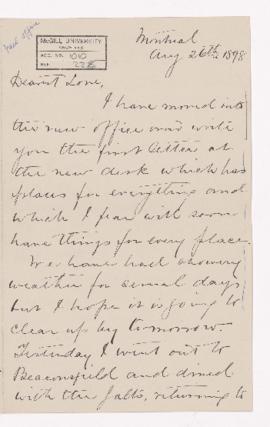 McGILL UNIVERSITY
ARCHIVES
ACC. NO. 1010
REF.
Montreal
Aug 26th 1898
Dearest Love,
I have moved into
the new office and write
you the first letter at
the new desk which has
places for everything and
which I fear will soon
have things for every place.
We have had showery
weather for several days
but I hope it is going to
clear up by tomorrow.
Yesterday I went out to
Beaconsfield and dined
with the returning to